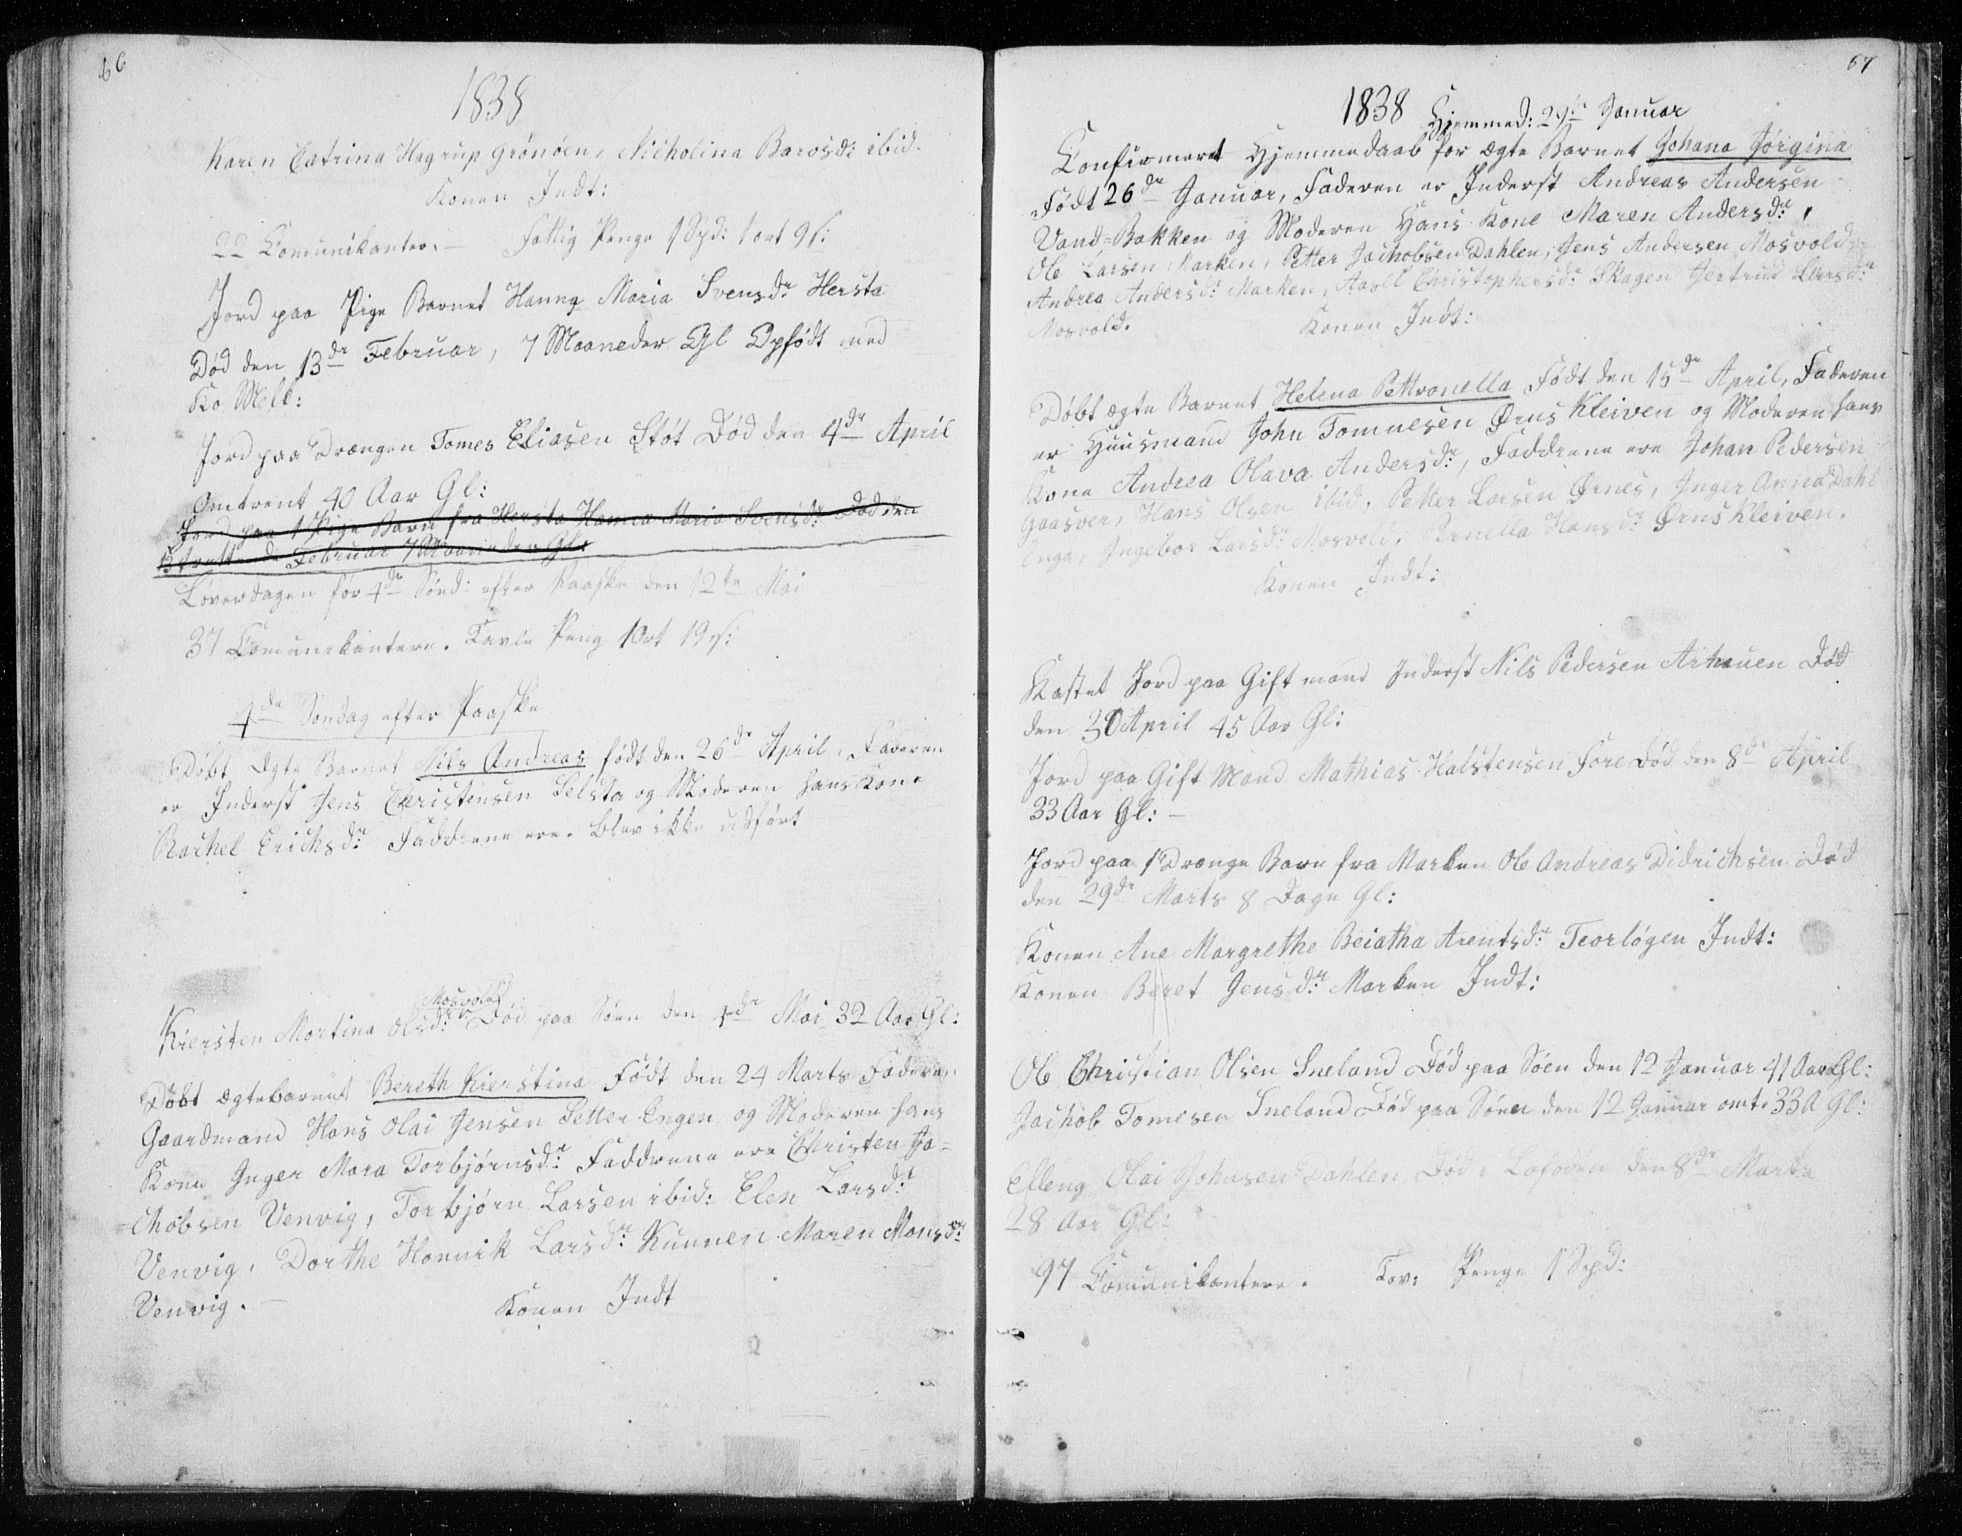 66
1838
Karen Catrina Hagrup Grønøen, Nicholina Barosd: ibid.
Konen Indt:
22 Comunikanter. – Fattig Penge 1 Spd: 1 ort 9 s:
Jord paa Pige Barnet Hanna Maria Svensdr Hersta
Død den 13de Februar, 7 Maaneder Gl Opfødt med
Ko Melk:
Jord paa Drængen Tomes Eliasen Støt Død den 4de April
Omtrent 40 Aar Gl:
Jord paa 1 Pige Barn fra Hersta Hanna Maria Svensdr Død den
Februar 7 Maaneder Gl:
Løverdagen før 4de Sønd: efter Paaske den 12te Mai
37 Comunikantere. Tavle Peng 1 Ort 19 s:
4de Søndag efter Paaske
Døbt Ægte Barnet Nils Andreas født den 26de April, Faderen
er Inderst Jens Christensen Selsta og Moderen hans Kone
Rachel Erichsdr Faddrene ere. Blev ikke udført
Mosvold
Kiersten Martina Olsdr Død paa Søen den 4de Mai 32 Aar Gl:
Døbt ægtebarnet Bereth Kierstina Født den 24 Marts Faderen
Gaardmand Hans Olai Jensen Setter Engen og Moderen hans
Kone Inger Mara Torbjørnsdr Faddrene ere Christen Ja-
chobsen Venvig, Torbjørn Larsen ibid: Elen Larsdr
Venvig, Dorthe Hannik Larsdr Kunnen Maren Monsdr
Venvig. –
Konen Indt
67
1838 Hjemmed: 29de Januar
Confirmeret Hjemmedaab for ægte Barnet Johana Jørgina
Født 26de Januar, Faderen er Inderst Andreas Andersen
Vand-Bakken og Moderen Hans Kone Maren Andersdr,
Ole Larsen Marken, Petter Jachobsen Dahlen, Jens Andersen Mosvold,
Andrea Andersdr Marken, Axell Christophersdr Skagen Jertrud Larsdr
Mosvold. Konen Indt:
Døbt ægte Barnet Helena Pettronella Født den 15de April, Faderen
er Huusmand John Tomesen Ørnes Kleiven og Moderen hans
Kone Andrea Olava Andersdr, Faddrene ere Johan Pedersen
Gaasver, Hans Olsen ibid, Petter Larsen Ørnes, Inger Anna Dahl
Enge, Ingebor Larsdr Mosvold, Pernella Hansdr Ørnskleiven.
Konen Indt:
Kastet Jord paa Gift mand Inderst Nils Pedersen Arhauen Død
den 30 April 45 Aar Gl:
Jord paa Gift Mand Mathias Halstensen Fore Død den 8de April
33 Aar Gl: –
Jord paa 1 Drænge Barn fra Marken Ole Andreas Didrichsen Død
den 29de Marts 8 Dage Gl:
Konen Ane Margrethe Beiatha Arentsdr Teorløgen Indt:
Konen Beret Jensdr Marken Indt:
Ole Christian Olsen Sneland Død paa Søen den 12 Januar 41 Aar Gl:
Jachob Tomesen Sneland Død paa Søen den 12 Januar omt. 33 A Gl:
Olai Johnsen Dahlen Død i Lofoden den 8de Marts
28 Aar Gl:
97 Comunikantere. Tav: Penge 1 Spd: